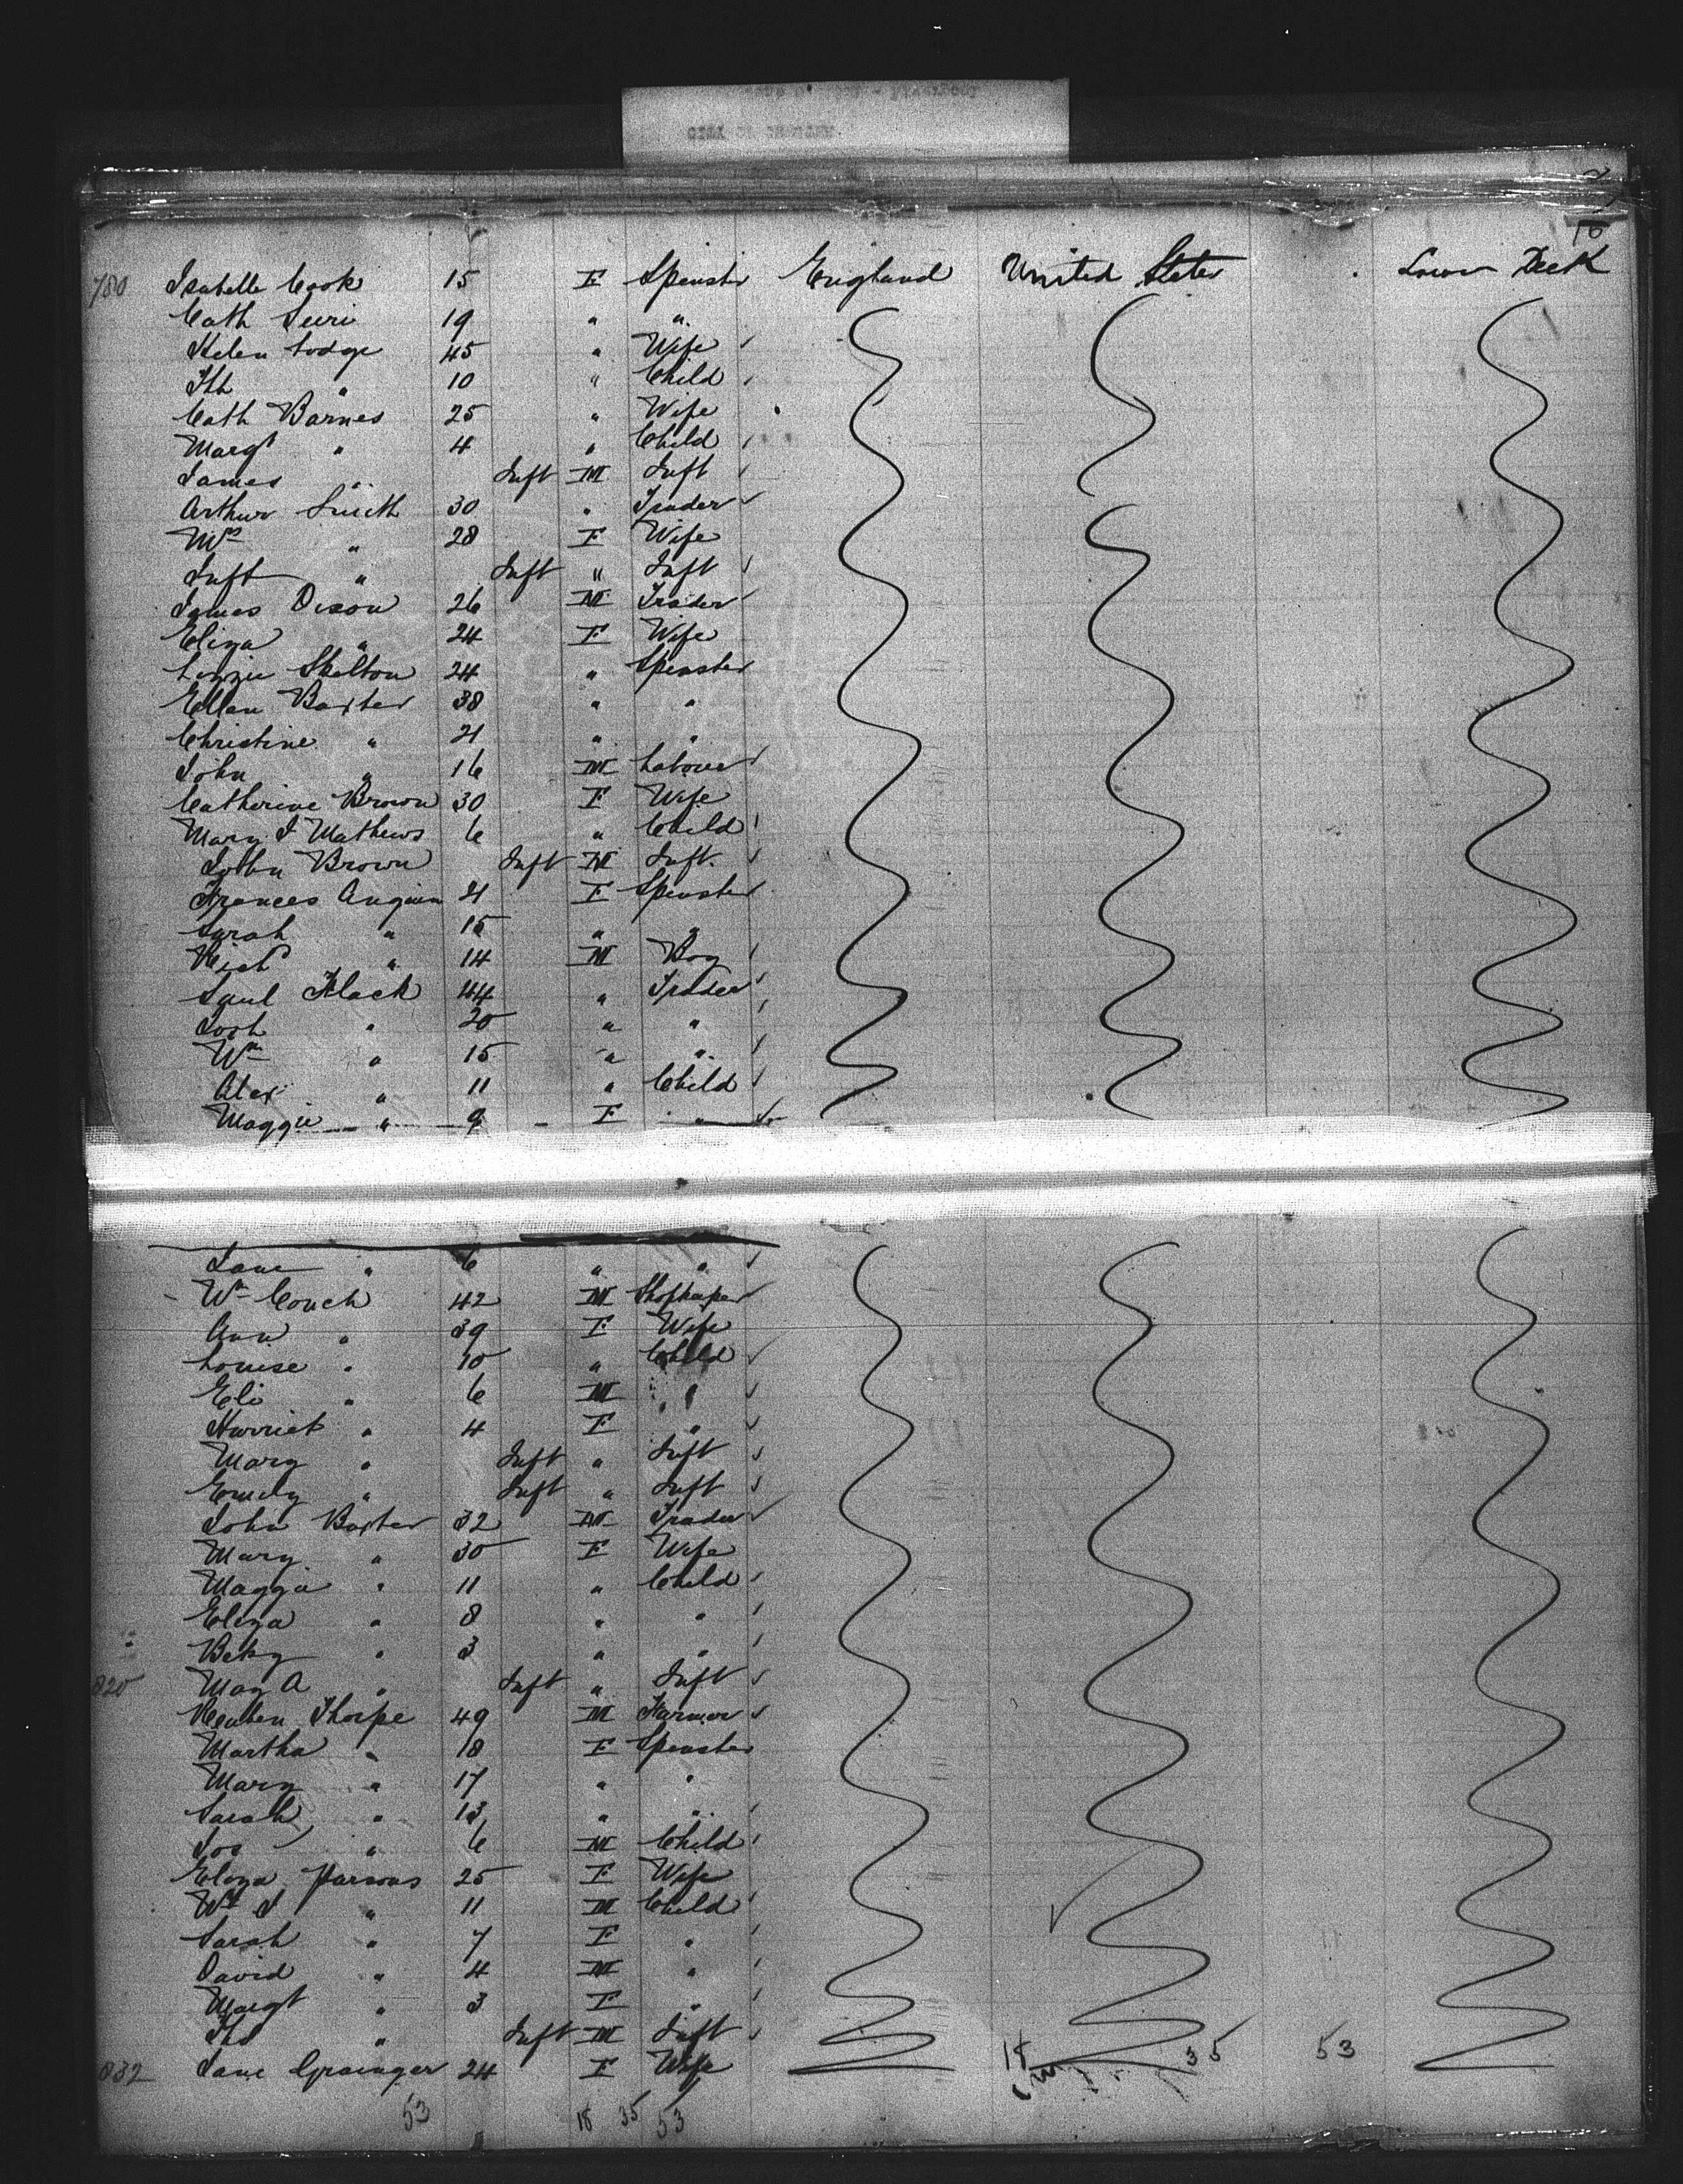 16
780 Isabelle Cook 15 F Spinster England United States Lower Deck
Cath 19 " "
Helen Lodge 45 " Wife
Th " 10 " Child
Cath Barnes 25 " Wife
Margt " 4 " Child
James " Inft M Inft
Arthur Smith 30 " Trader
Mrs " 28 F Wife
Inft " Inft " Inft
James Dixon 26 M Trader
Eliza " 24 F Wife
Lizzie Skelton 24 " Spinster
Ellen Baxter 38 " "
Christine " 21 " "
John " 16 M Labourer
Catherine Brown 30 F Wife
Mary J Mathews 6 " Child
John Brown Inft M Inft.
Frances 21 F Spinster
Sarah " 15 " "
Richd " 14 M Boy
Saul Black 44 " Trader
Josh " 20 " "
Wm " 15 " "
Alex " 11 " Child
Maggie " 9 F "
Jane " 6 " "
Wm Couch 42 M Shopkeeper
Ann " 39 F Wife
Louise " 10 " Child
Eli " 6 M "
Harriet " 4 F "
Mary " Inft " Inft
Emily " Inft " Inft
John Baxter 32 M Trader
Mary " 30 F Wife
Maggie " 11 " Child
Eliza " 8 " "
Betsy " 3 " "
820 May A " Inft " Inft
Reuben Thorpe 49 M Farmer
Martha " 18 F Spinster
Mary " 17 " "
Sarah " 13 " "
Jos " 6 M Child
Eliza Parsons 25 F Wife
Wm J " 11 M Child
Sarah " 7 F "
David " 4 M "
Margt " 3 F "
Tho " Inft M Inft
832 Jane Grainger 24 F Wife 18 35 53
53 18 35 53